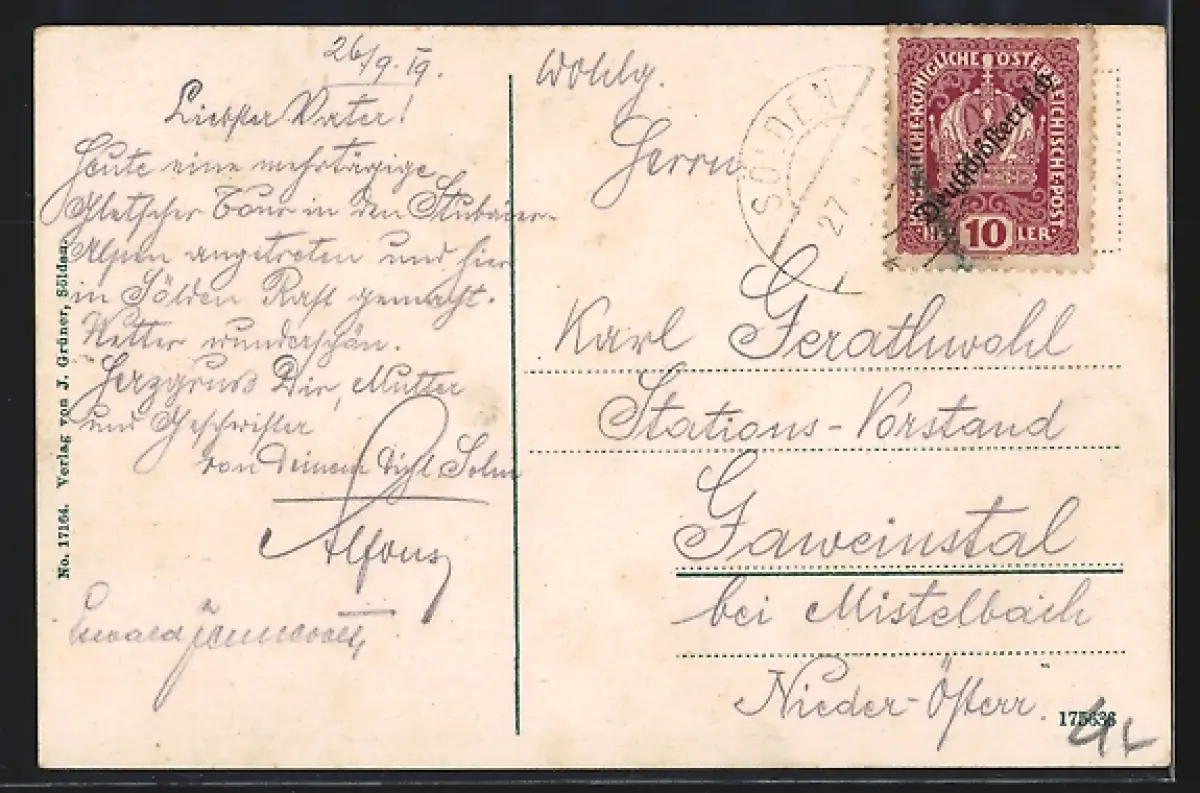 26/9. 19.
Liebster Vater!
Heute eine mehrtägige
Gletscher Tour in den Stubaier-
Alpen angetreten und hier
in Sölden Rast gemacht.
Wetter wunderschön.
Herzgruss Dir, Mutter
und Geschwister
von Deinem
Alfons
Ewald
No. 17164. Verlag von J. Grüner, Sölden.
Wohlg.
Herrn
Karl Gerathwohl
Stations-Vorstand
Gaweinstal
bei Mistelbach
Nieder-Österr.
175636
SÖLDEN
27
KAISERLICHE KÖNIGLICHE ÖSTERREICHISCHE POST
Deutschösterreich
HELLER
10